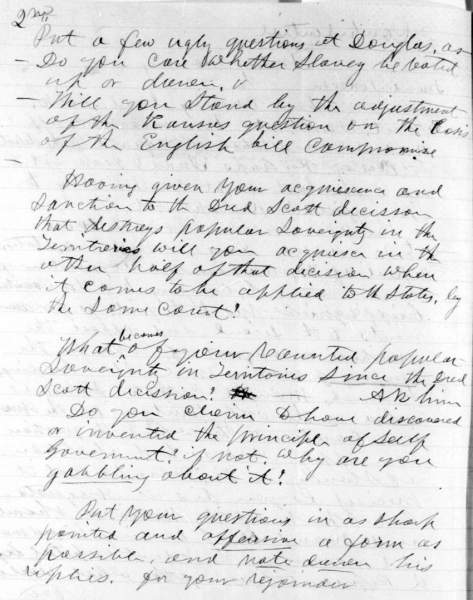 2nd
Put a few ugly questions at Douglas, as
– Do you care whether Slavery be voted
up or down,
– Will you stand by the adjustment
of the Kansas question on the basis
of the English bill compromise
–
Having given your acquiescence and
Sanction to the Dred Scott decission
that destroys popular Soveignty in the
Territories will you acquiesce in the
other half of that decision when
it comes to be applied to the States, by
the same court?
What becomes of your vaunted popular
Soveignty in Territories since the Dred
Scott decission? Ask him
Do you claim to have discovered
or invented the principle of Self
Goverment? if not, Why are you
gabbling about it?
Put your questions in as sharp
pointed and offensive a form as
possible, and note down his
replies, for your rejoinder